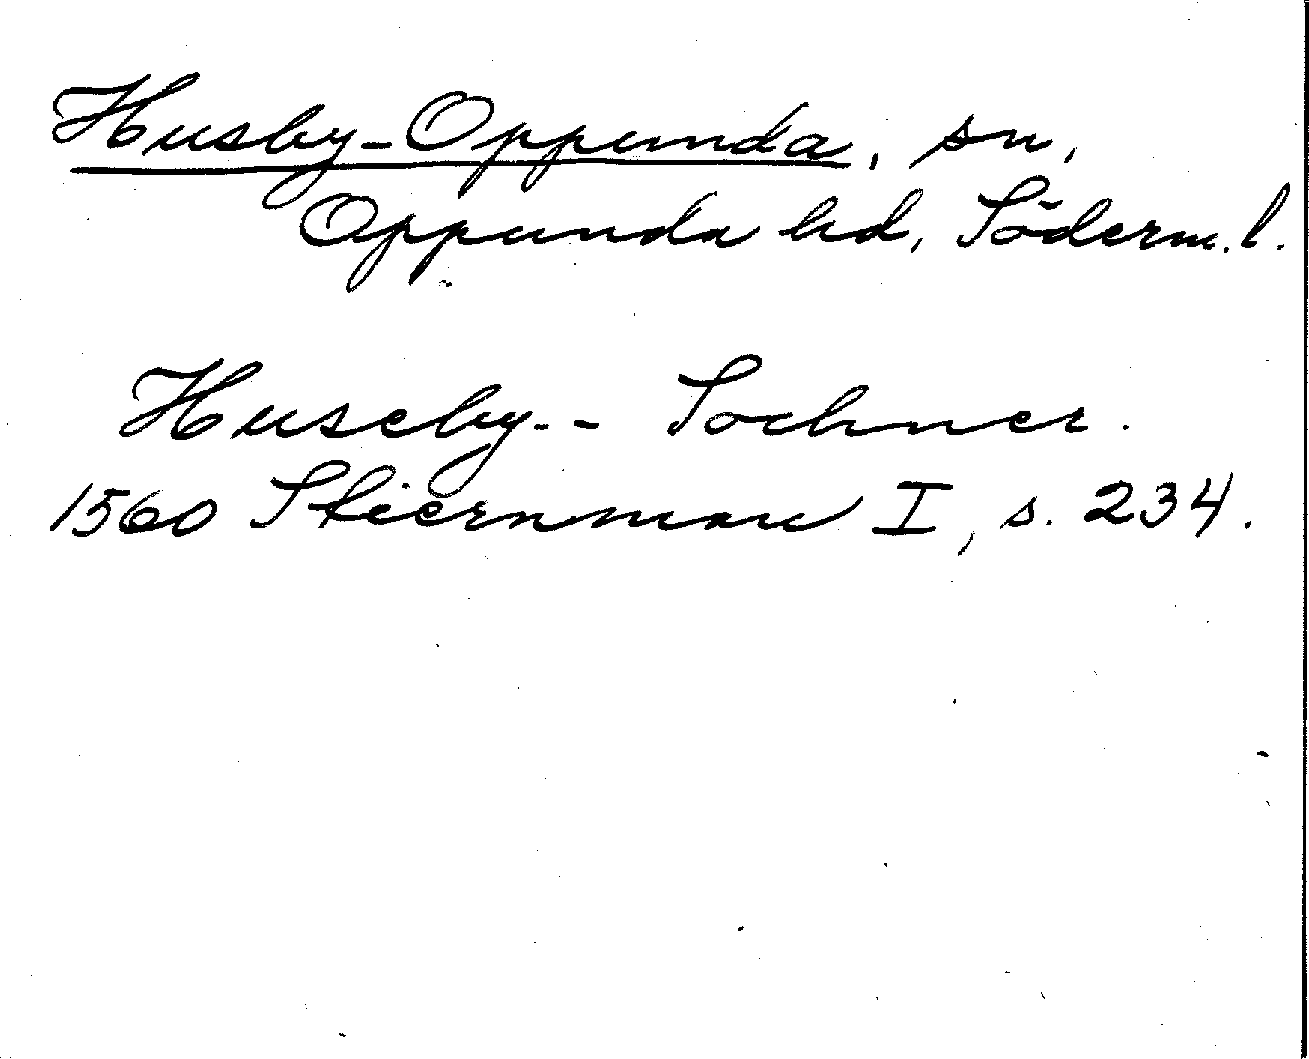 Husby-Oppunda, sn,
Oppunda hd, Söderm. l.
Huseby-- Sochner.
1560 Stiernman I, s. 234.